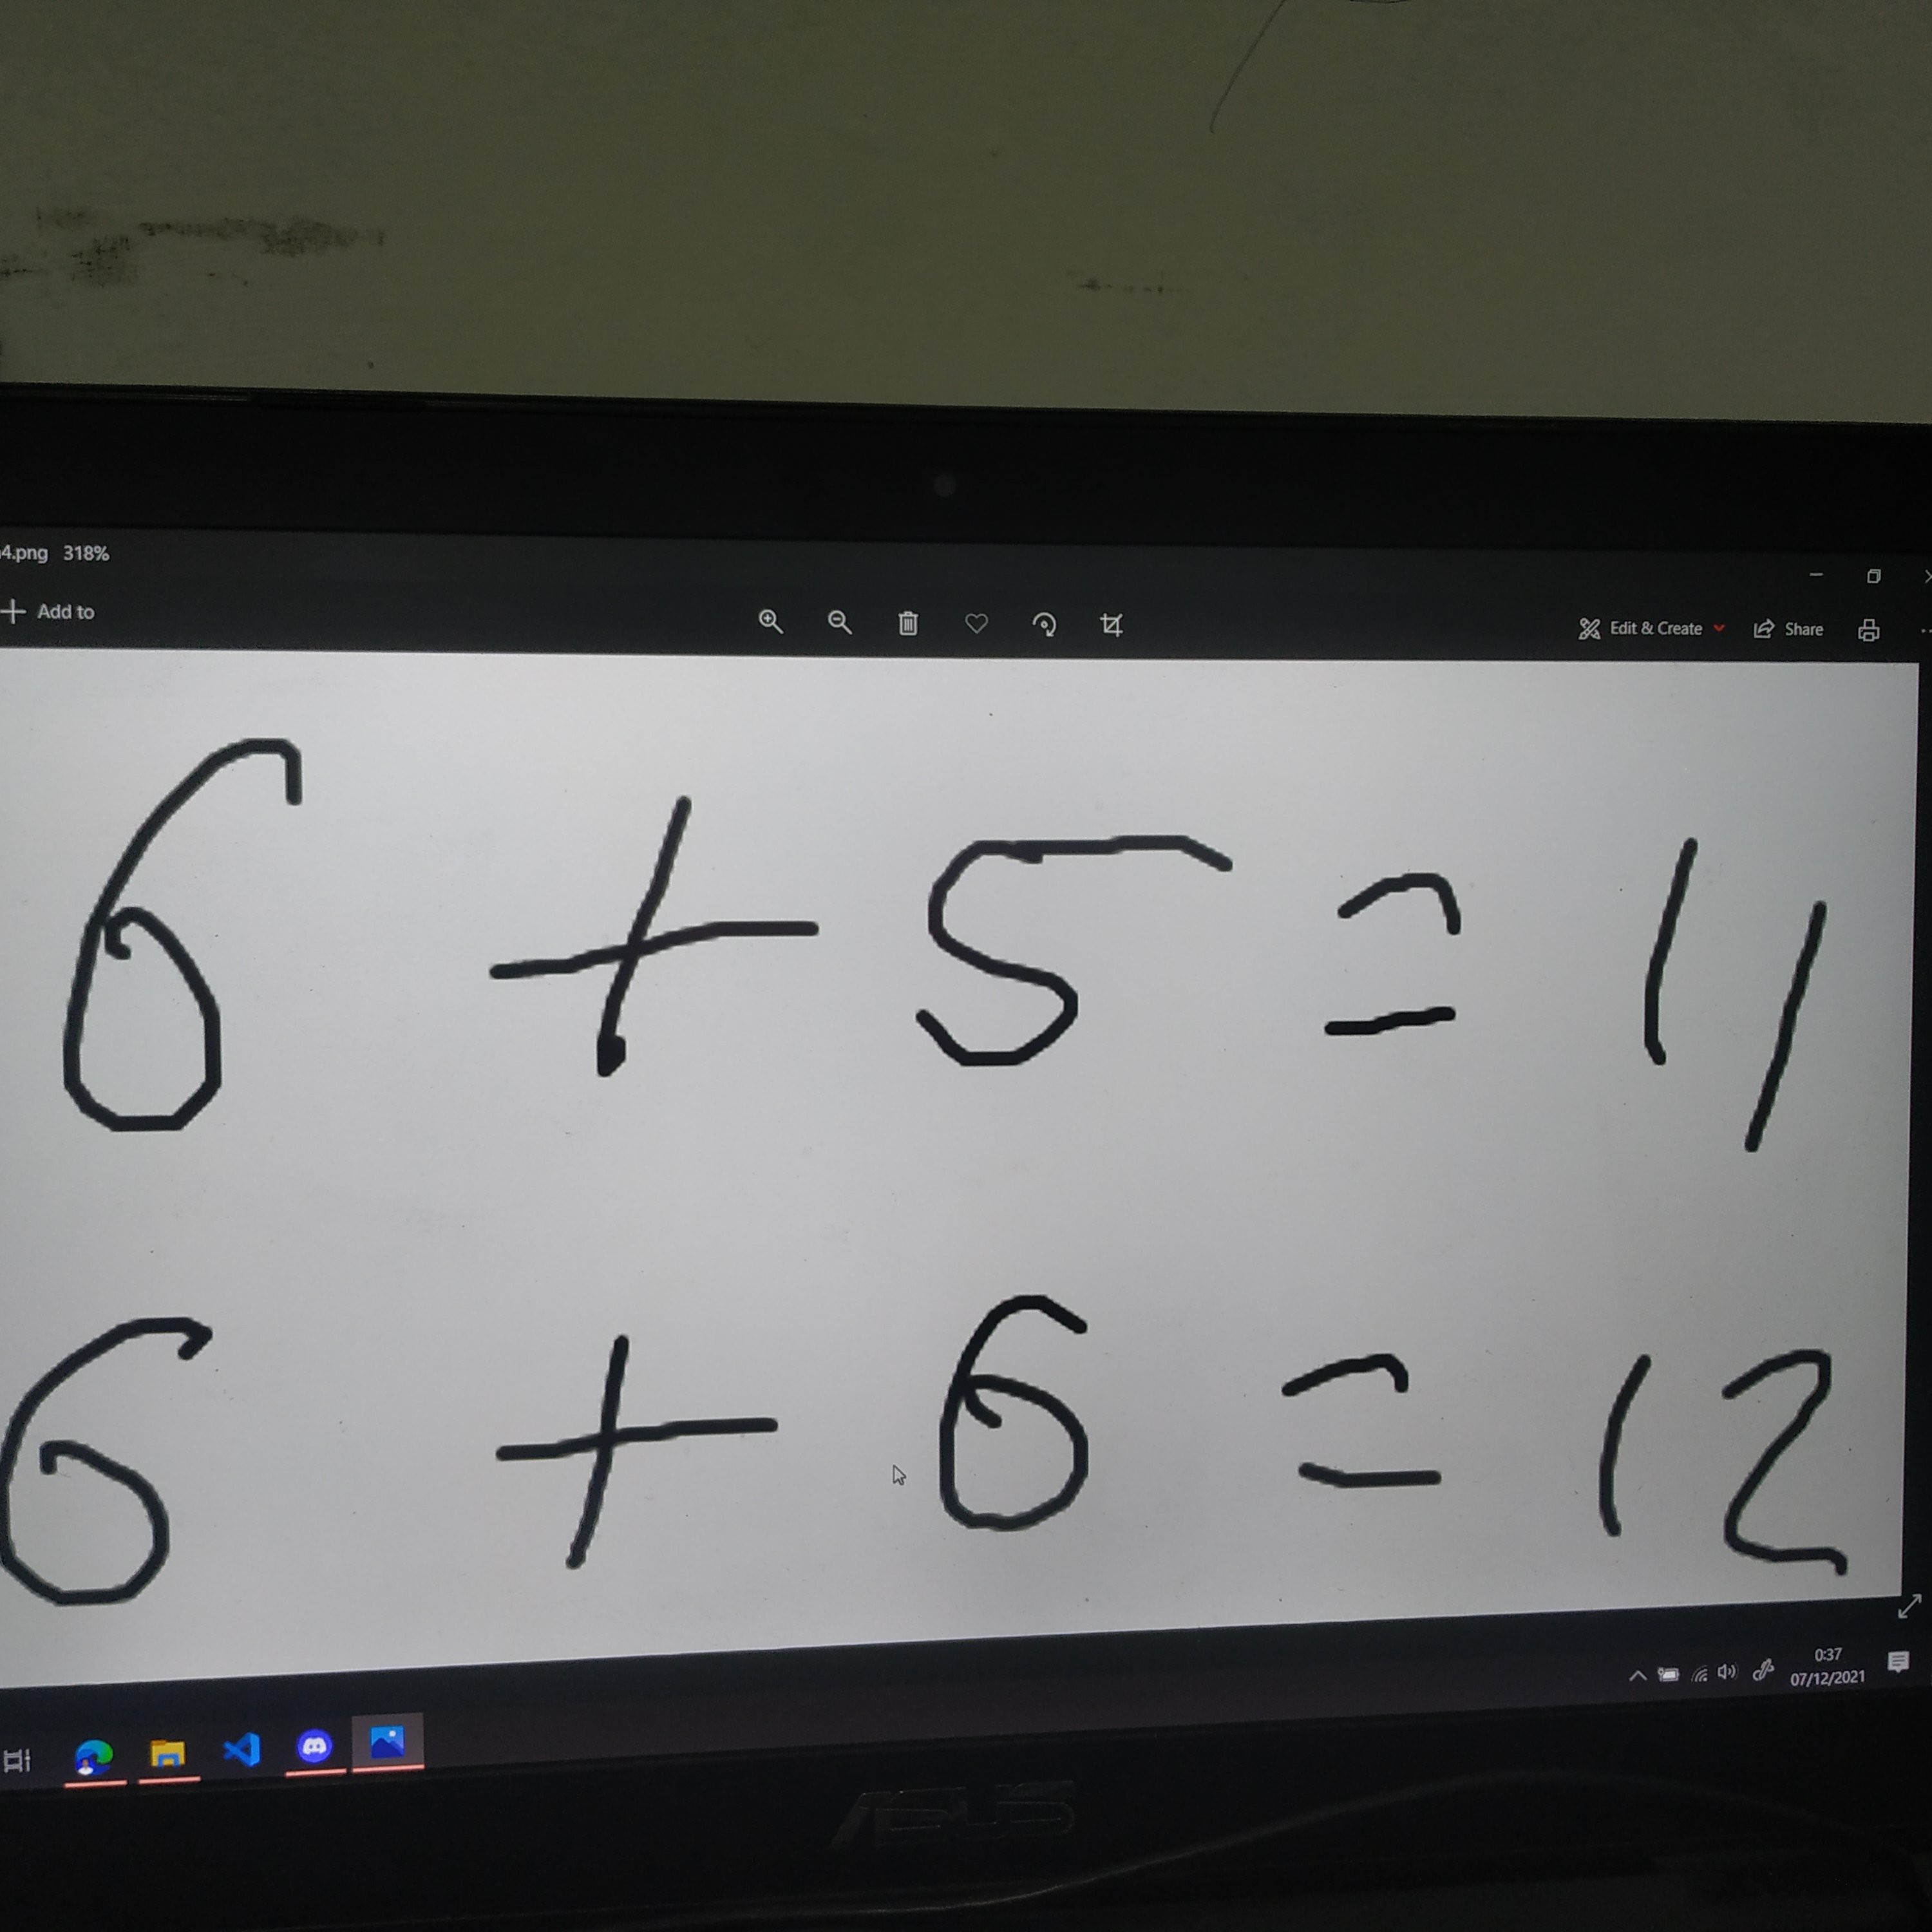 4.png 318%
Add to
Edit & Create Share
6 + 5 = 11
6 + 6 = 12
0:37
07/12/2021
ASUS